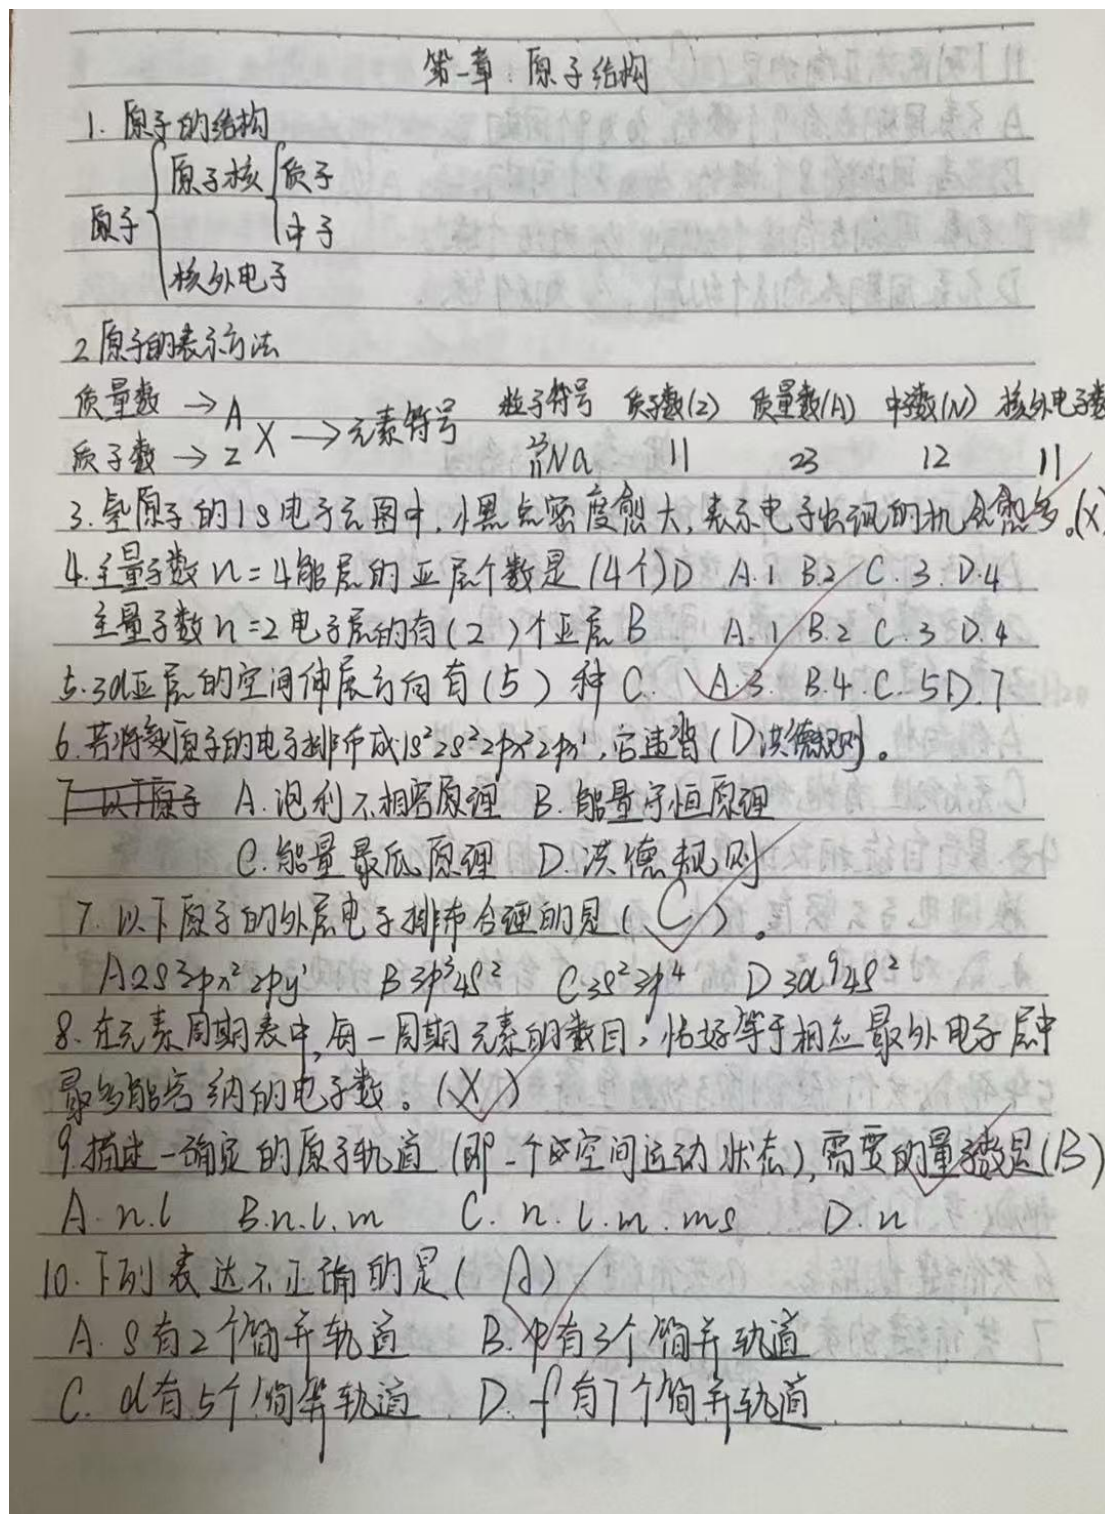 第一章：原子结构
1. 原子的结构
原子 原子核 质子
中子
核外电子
2 原子的表示方法
质量数 → A 粒子符号 质子数(Z) 质量数(A) 中子数(N) 核外电子数
质子数 → Z X → 元素符号 ²³₁₁Na 11 23 12 11
3. 氢原子的1s电子云图中，小黑点密度愈大，表示电子出现的机会愈多。(X)
4. 主量子数n=4能层的亚层个数是(4个)D A.1 B.2 C.3. D.4
主量子数n=2电子层的有(2)个亚层B A.1 B.2 C.3 D.4
5. 3d亚层的空间伸展方向有(5)种 C. A.3. B.4. C.5 D.7
6. 若将氮原子的电子排布成1s²2s²2px²2py¹，它违背(D洪德规则)。
A. 泡利不相容原理 B. 能量守恒原理
C. 能量最低原理 D. 洪德规则
7. 以下原子的外层电子排布合理的是(C)。
A 2s²2px²2py¹ B 3p³4s² C 3s²3p⁴ D 3d⁹4s²
8. 在元素周期表中，每一周期元素的数目，恰好等于相应最外电子层中
最多能容纳的电子数。(X)
9. 描述一确定的原子轨道(即一个空间运动状态)，需要的量子数是(B)
A. n.l B. n.l.m C. n.l.m.ms D. n
10. 下列表达不正确的是(A)
A. s有2个简并轨道 B. p有3个简并轨道
C. d有5个简并轨道 D. f有7个简并轨道